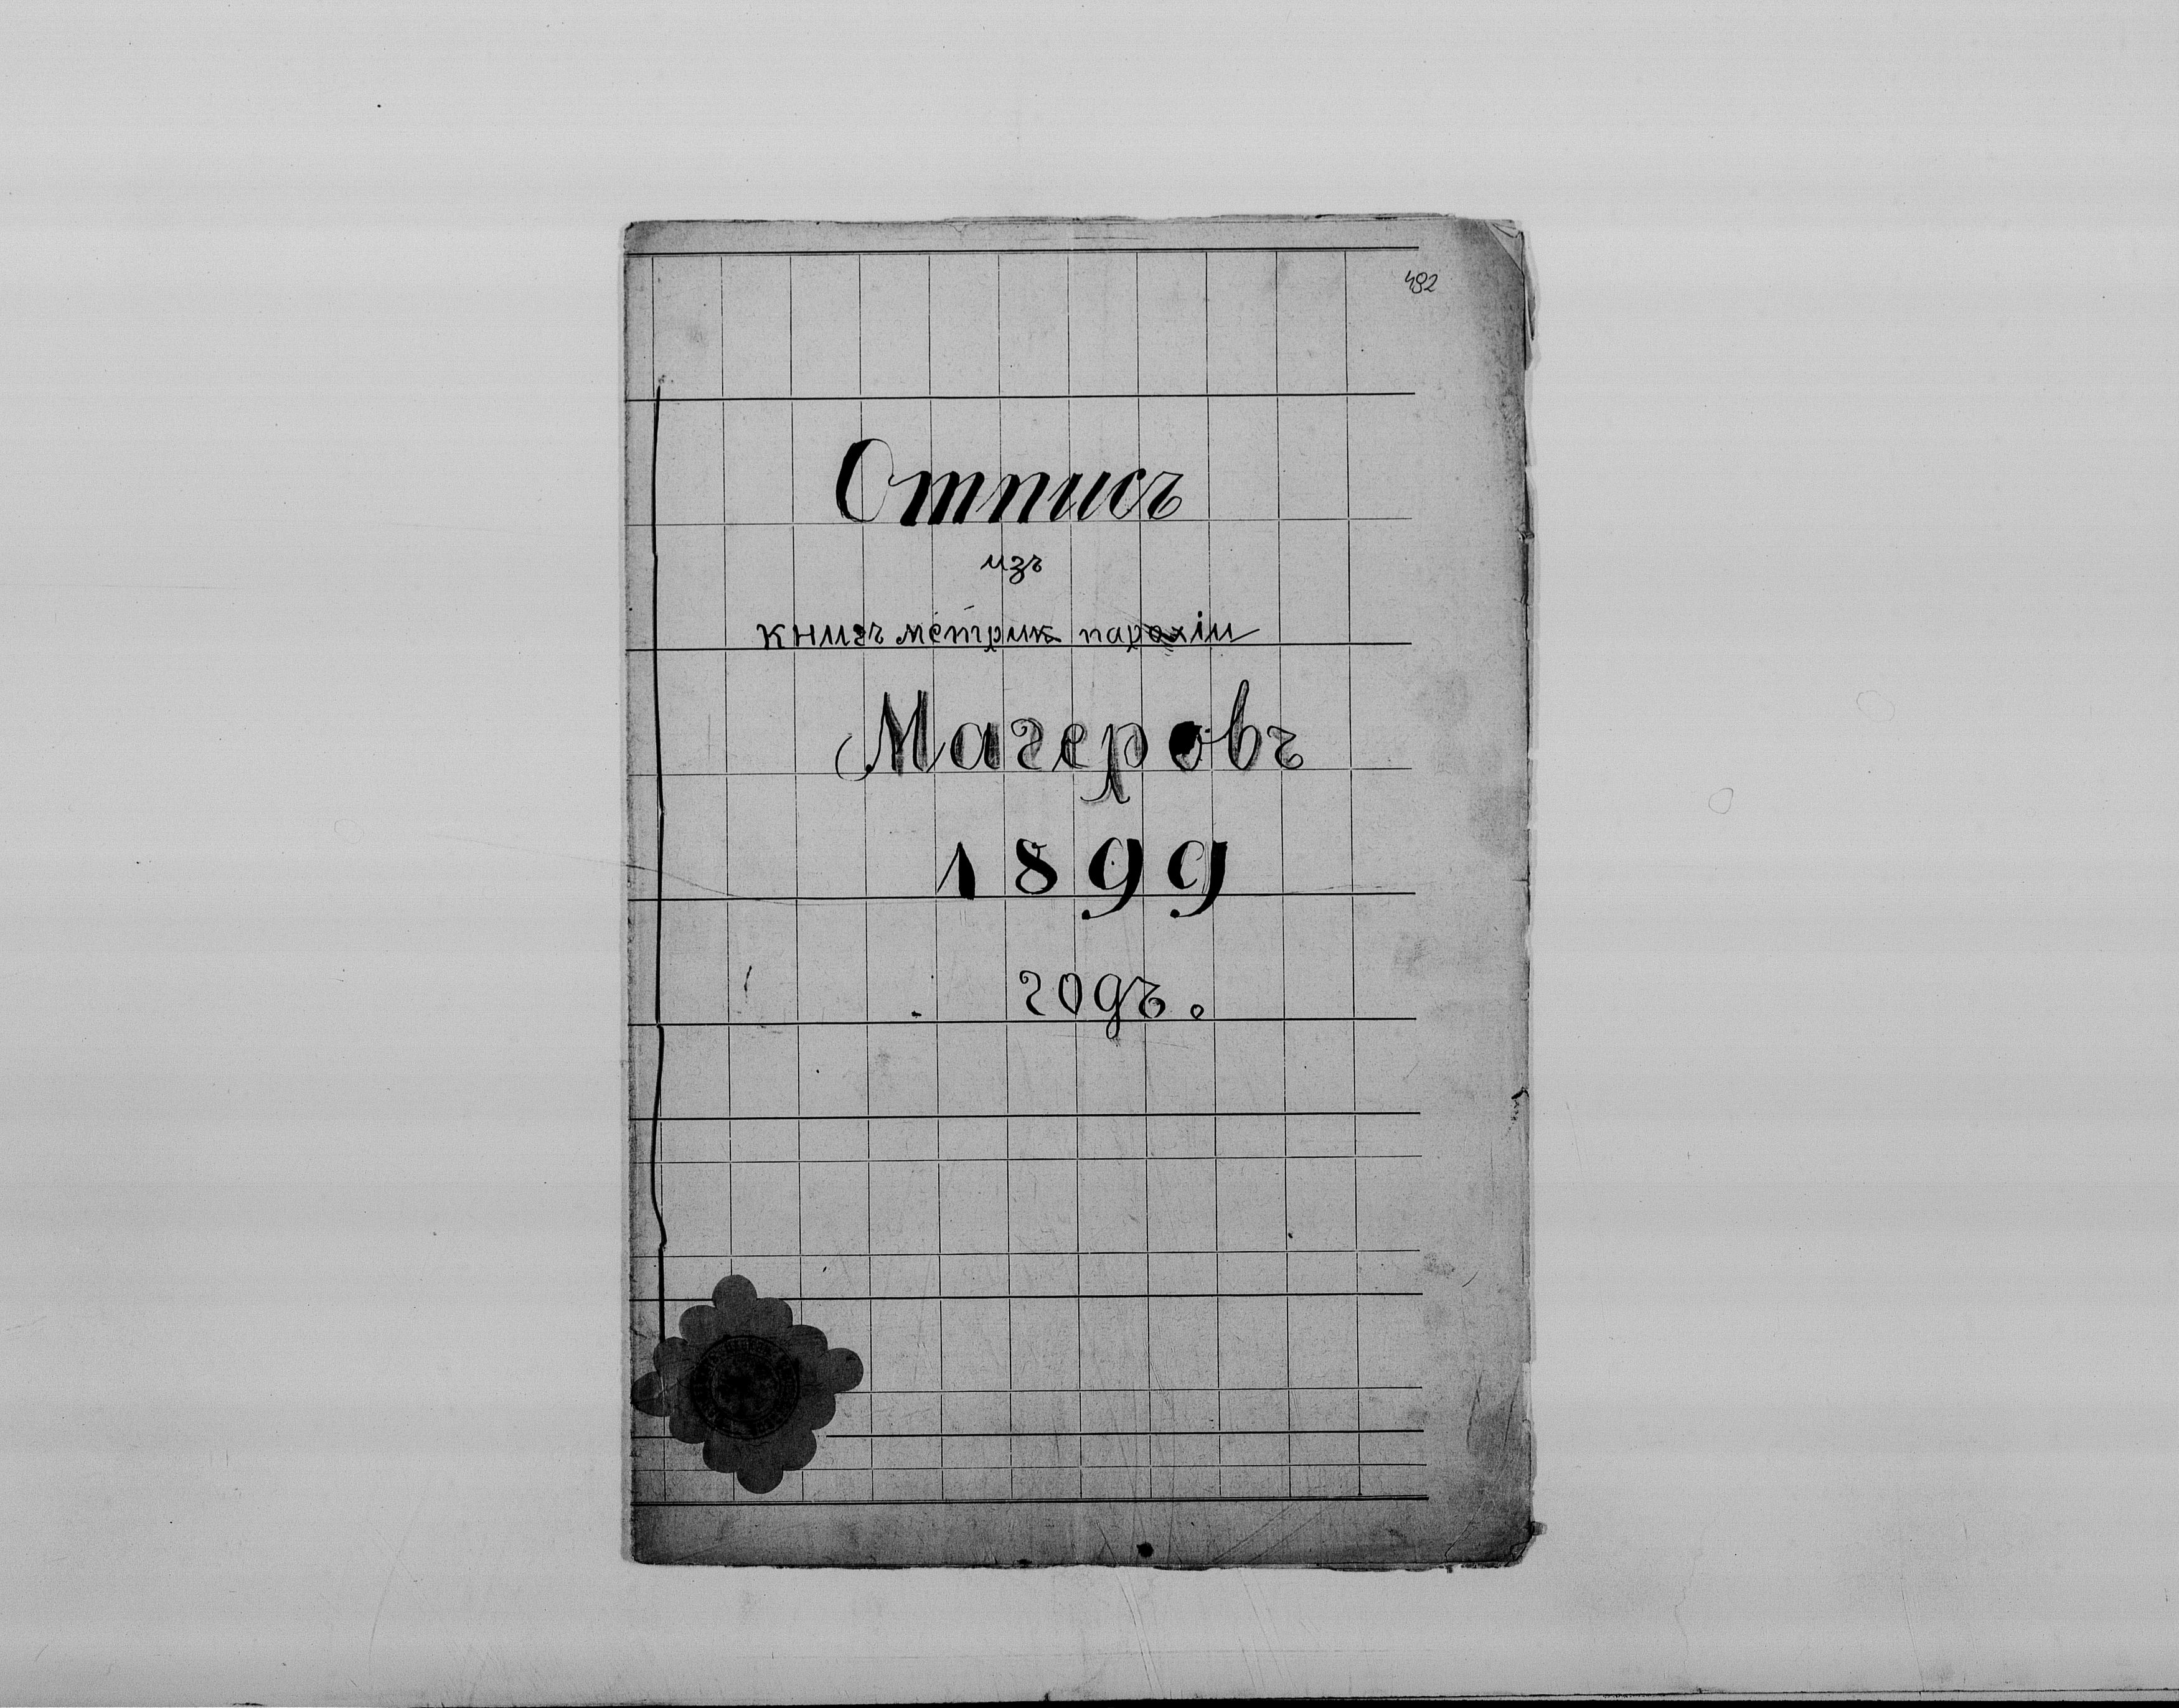 482
Отписъ
изъ
книгъ метрик парохіи
Магеровъ
1899
годъ.